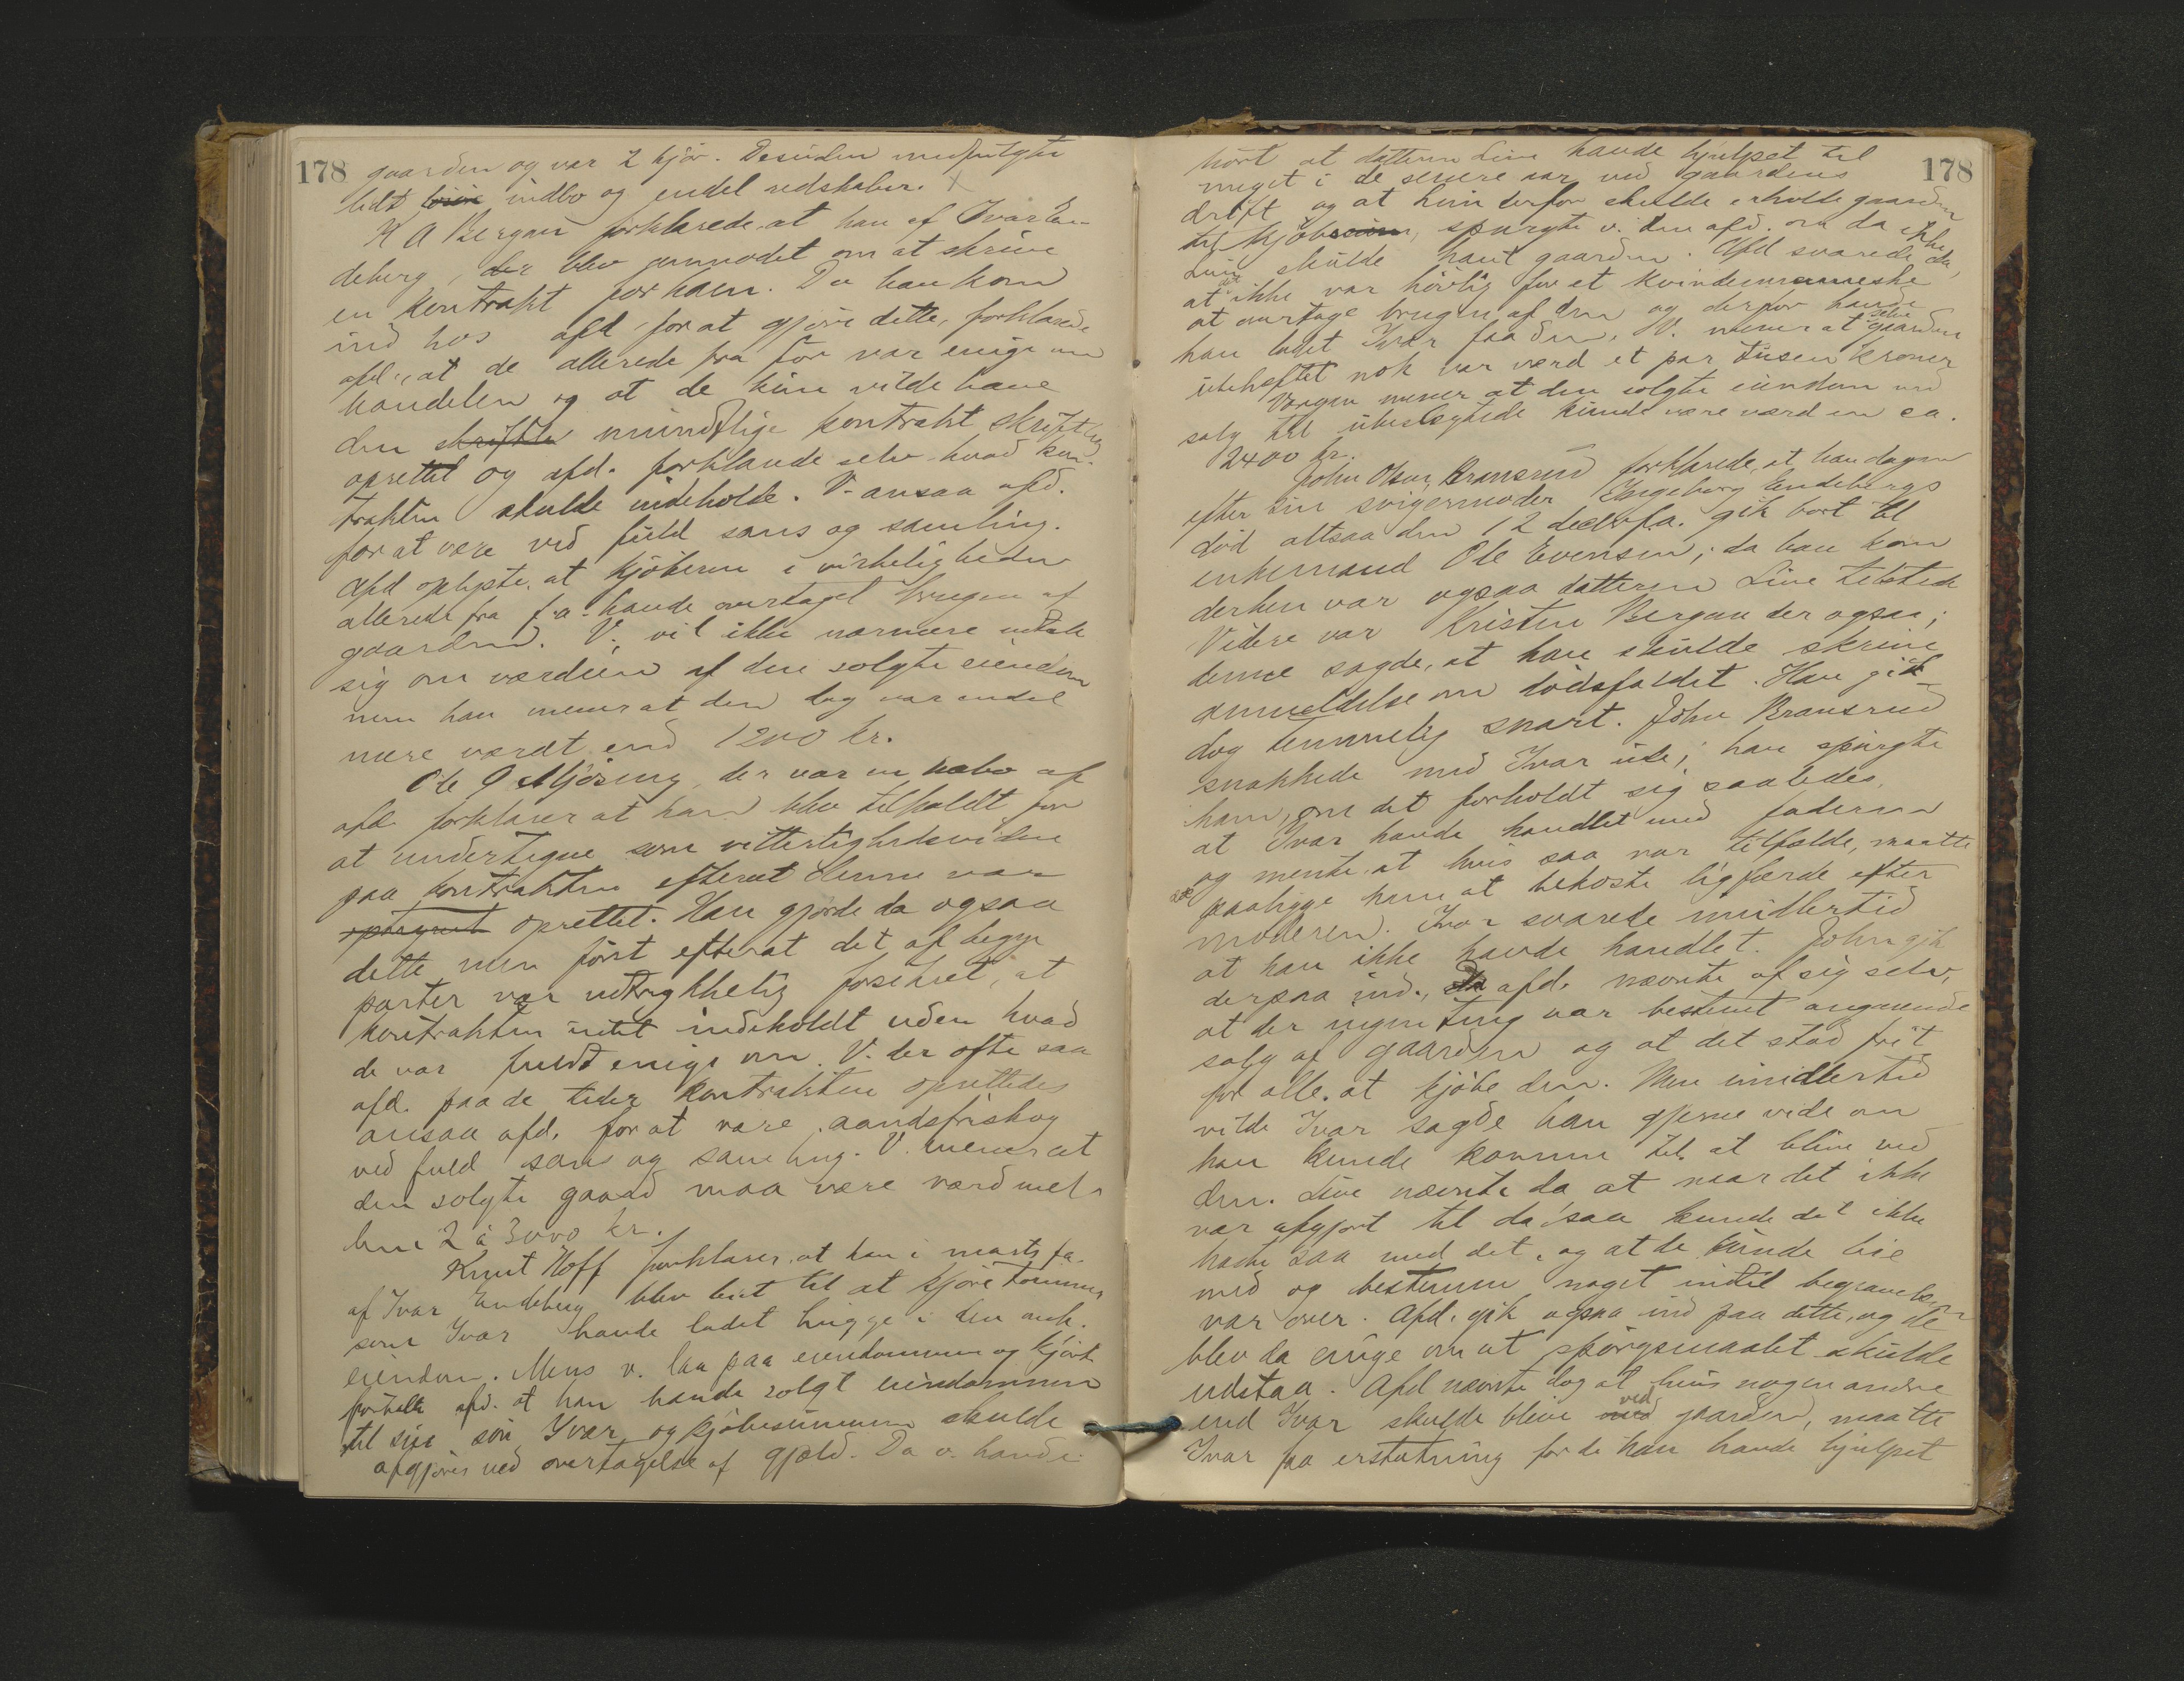 178
gaarden og var 2 kjør. Desuden medfulgte
lidt indbo og endel redskaber. X
K A Bergan forklarede, at han af Ivar En-
deberg, der blev anmodet om at skrive
en kontrakt for ham. Da han kom
ind hos afd for at gjøre dette, forklarede
afd., at de allerede fra før var enige om
handelen og at de kun vilde have
den skriftlig mundtlige kontrakt skriftlig
oprettet og afd. forklarede selv hvad kon-
trakten skulde indeholde. V. ansaa afd.
for at være ved fuld sans og samling.
Afd oplyste, at kjøberen i virkeligheden
allerede fra f.a. havde overtaget brugen af
gaarden. V. vil ikke nærmere udtale
sig om værdien af den solgte eiendom
men han mener at den dog var endel
mere værdt end 1200 kr.
Ole O Mjøseng, der var en nabo af
afd. forklarer at han blev tilkaldt for
at undertegne som vitterlighedsvidne
paa kontrakten efterat denne var
oprettet. Han gjorde da ogsaa
dette men først efterat det af begge
parter var udtrykkelig forsikret, at
kontrakten intet indeholdt uden hvad
de var fuldt enige om. V. der ofte saa
afd. paa de tider kontrakten oprettedes
ansaa afd. for at være aandsfrisk og
ved fuld sans og samling. V. mener at
den solgte gaard maa være værd mel-
lem 2 à 3000 kr.
Knut Hoff forklarer, at han i marts f.a.
af Ivar Endeberg blev leiet til at kjøre tømmer
som Ivar havde ladet hugge i den omh.
eiendom. Mens v. laa paa eiendommen og kjørte
fortalte afd. at han havde solgt eiendommen
til sin søn Ivar og kjøbesummen skulde
afgjøres ved overtagelse af gjæld. Da v. havde
178
hørt at datteren Live havde hjulpet til
meget i de senere aar ved gaardens
drift og at hun derfor skulde erholde gaarden
til kjøbs, spurgte v. den afd. om da ikke
Live skulde havt gaarden. Afd svarede da,
at det ikke var høvelig for et kvindemenneske
at overtage brugen af den og derfor havde
han ladet Ivar faa den. V. mener at selve gaarden
ubeheftet nok var værd et par tusen kroner
Vergen mener at den solgte eiendom ved
salg til ubeslegtede kunde være værd en ca.
2400 kr.
John Olsen Bransrud forklarede, at han dagen
efter sin svigermoder Ingeborg Endebergs
død altsaa den 12 decbr f.a. gik bort til
enkemand Ole Evensen; da han kom
derhen var ogsaa datteren Live tilstede
Videre var Kristen Bergan der ogsaa;
denne sagde, at han skulde skrive
anmeldelse om dødsfaldet. Han gik
dog temmelig snart. John Bransrud
snakkede med Ivar ude; han spurgte
ham, om det forholdt sig saaledes,
at Ivar havde handlet med faderen
og mente, at hvis saa var tilfælde, maatte
det paaligge ham at bekoste ligfærde efter
moderen. Ivar svarede imidlertid
at han ikke havde handlet. John gik
derpaa ind., da afd. nævnte af sig selv,
at der ingenting var bestemt angaaende
salg af gaarden og at det stod frit
for alle. at kjøbe den. Men imidlertid
vilde Ivar sagde han gjerne vide om
han kunde komme til at blive ved
den. Live nævnte da at naar det ikke
var afgjort til da, saa kunde det ikke
haste saa med det, og at de kunde bie
med og bestemme noget indtil begravelsen
var over. Afd. gik ogsaa ind paa dette, og de
blev da enige om at spørgsmaalet skulde
udstaa. Afd nævnte dog at hvis nogen andre
end Ivar skulde blive med ved gaarden, maatte
Ivar faa erstatning for de han havde hjulpet